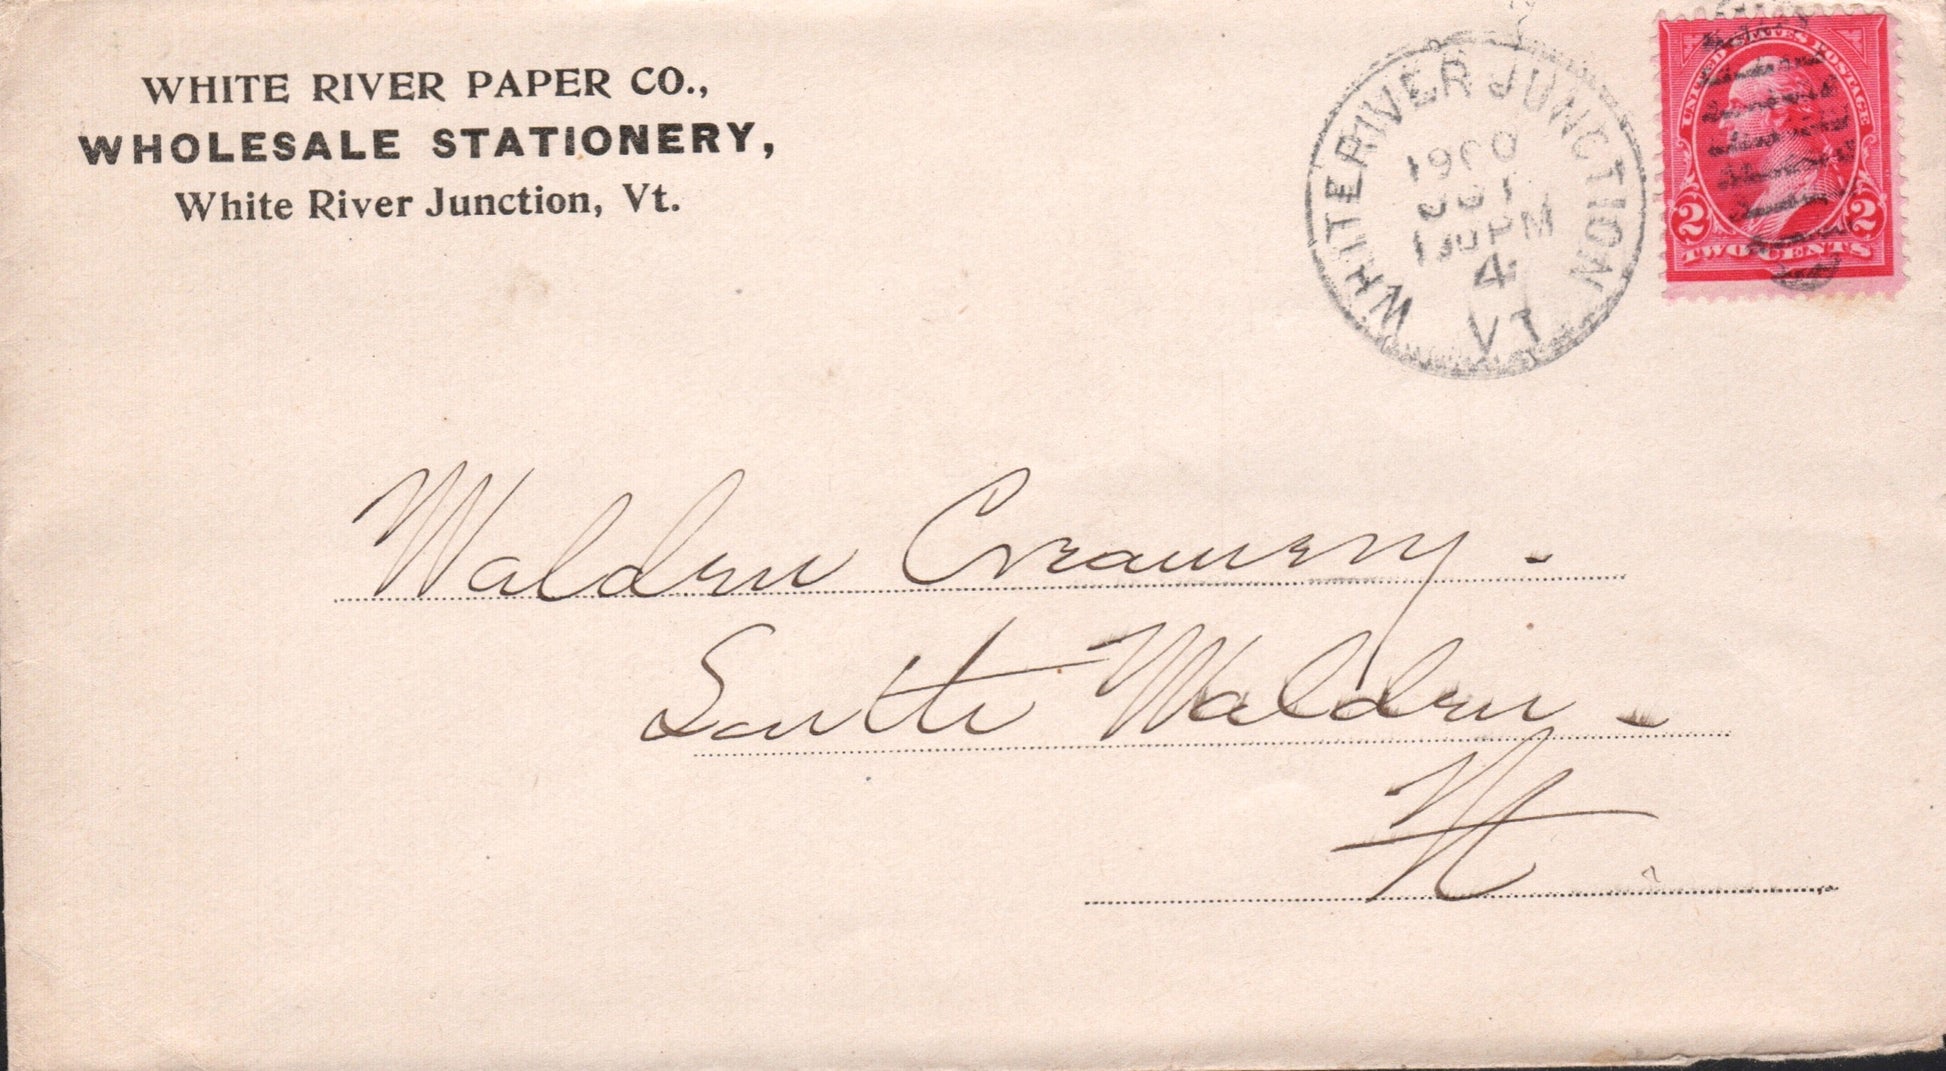 WHITE RIVER PAPER CO.,
WHOLESALE STATIONERY,
White River Junction, Vt.
WHITE RIVER JUNCTION
1900
PM
4
VT
UNITED STATES POSTAGE
2 2
TWO CENTS
Walden Creamery.
South Walden.
Vt.